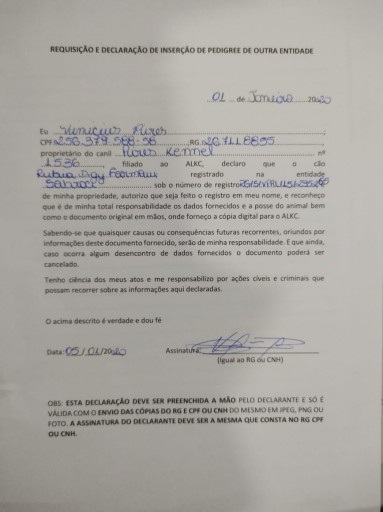 REQUISIÇÃO E DECLARAÇÃO DE INSERÇÃO DE PEDIGREE DE OUTRA ENTIDADE
01 de Janeiro 2020
Eu Vinicius Flores
CPF 256.379.588-58 RG n
proprietário do canil Flores Kennel nº
1536, filiado ao ALKC, declaro que o cão
registrado na entidade
Sobraci sob o número de registro
de minha propriedade, autorizo que seja feito o registro em meu nome, e reconheço
que é de minha total responsabilidade os dados fornecidos e a posse do animal bem
como o documento original em mãos, onde forneço a cópia digital para o ALKC.
Sabendo-se que quaisquer causas ou consequências futuras recorrentes, oriundos por
informações deste documento fornecido, serão de minha responsabilidade. E que ainda,
caso ocorra algum desencontro de dados fornecidos o documento poderá ser
cancelado.
Tenho ciência dos meus atos e me responsabilizo por ações cíveis e criminais que
possam recorrer sobre as informações aqui declaradas.
O acima descrito é verdade e dou fé
Data: 05/01/2020 Assinatura:
(Igual ao RG ou CNH)
OBS: ESTA DECLARAÇÃO DEVE SER PREENCHIDA A MÃO PELO DECLARANTE E SÓ É
VÁLIDA COM O ENVIO DAS CÓPIAS DO RG E CPF OU CNH DO MESMO EM JPEG, PNG OU
FOTO. A ASSINATURA DO DECLARANTE DEVE SER A MESMA QUE CONSTA NO RG CPF
OU CNH.